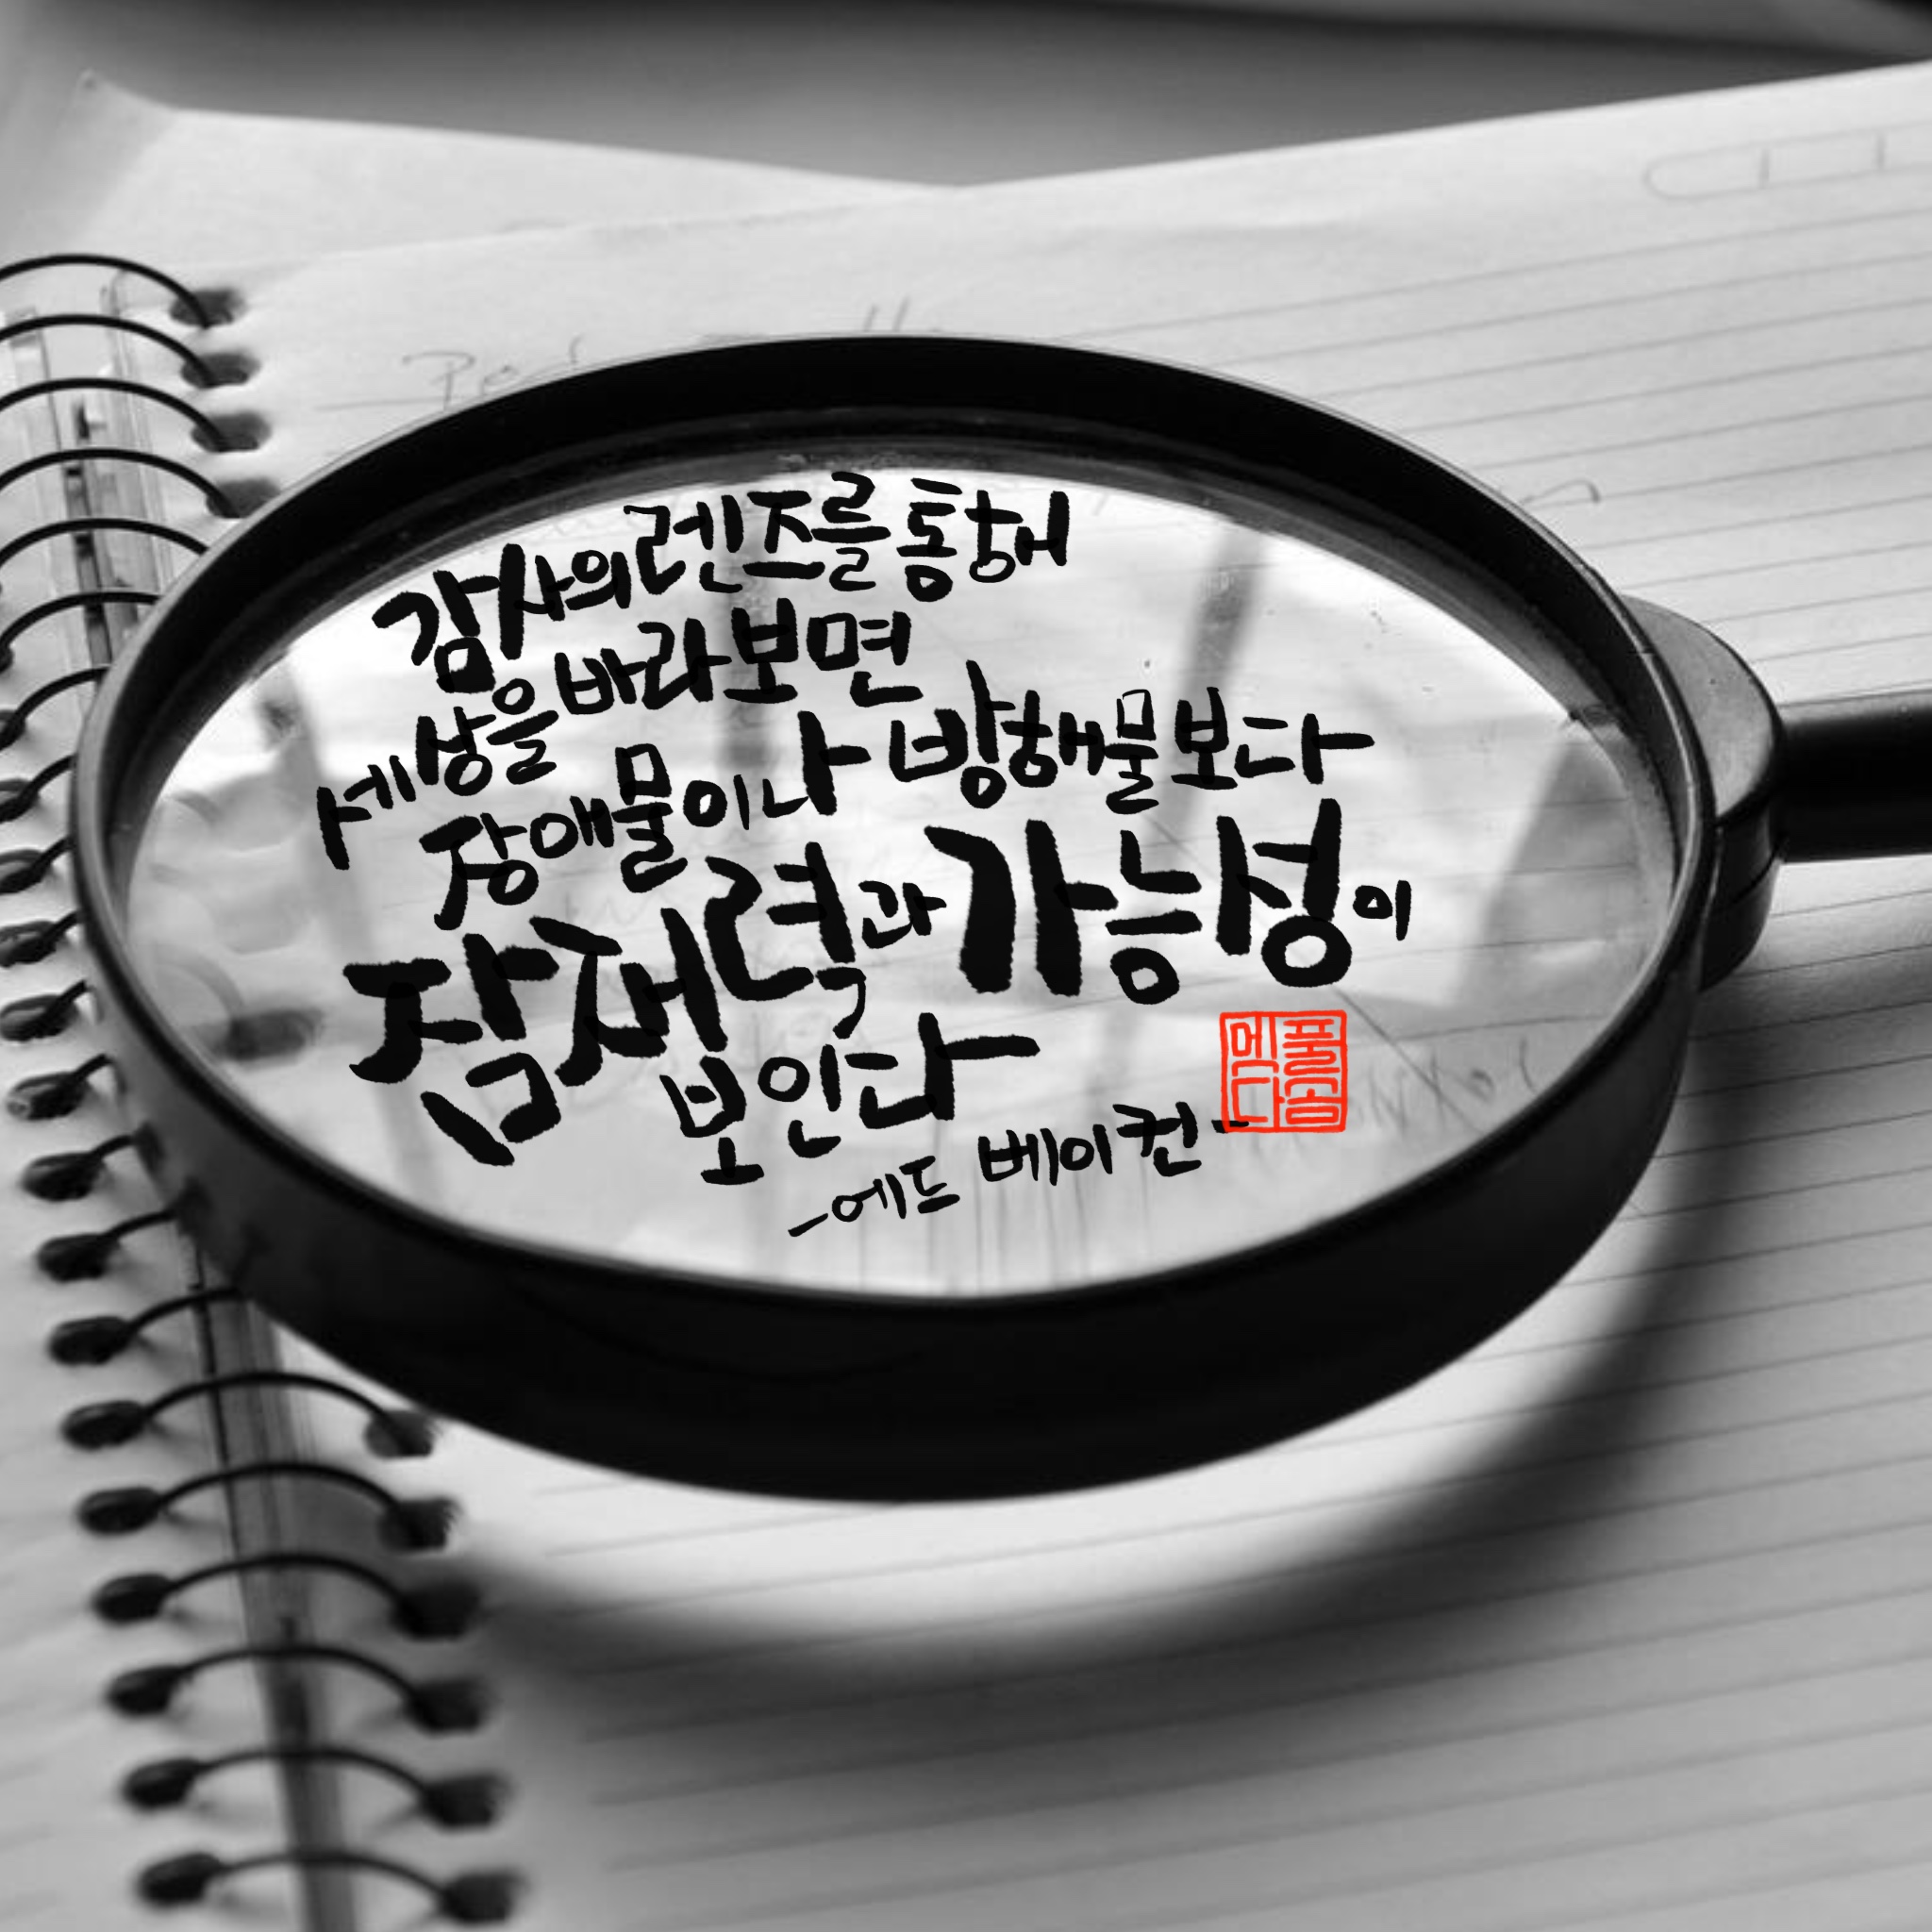 감사의 렌즈를 통해
세상을 바라보면
장애물이나 방해물보다
잠재력과 가능성이
보인다
-에드 베이컨-